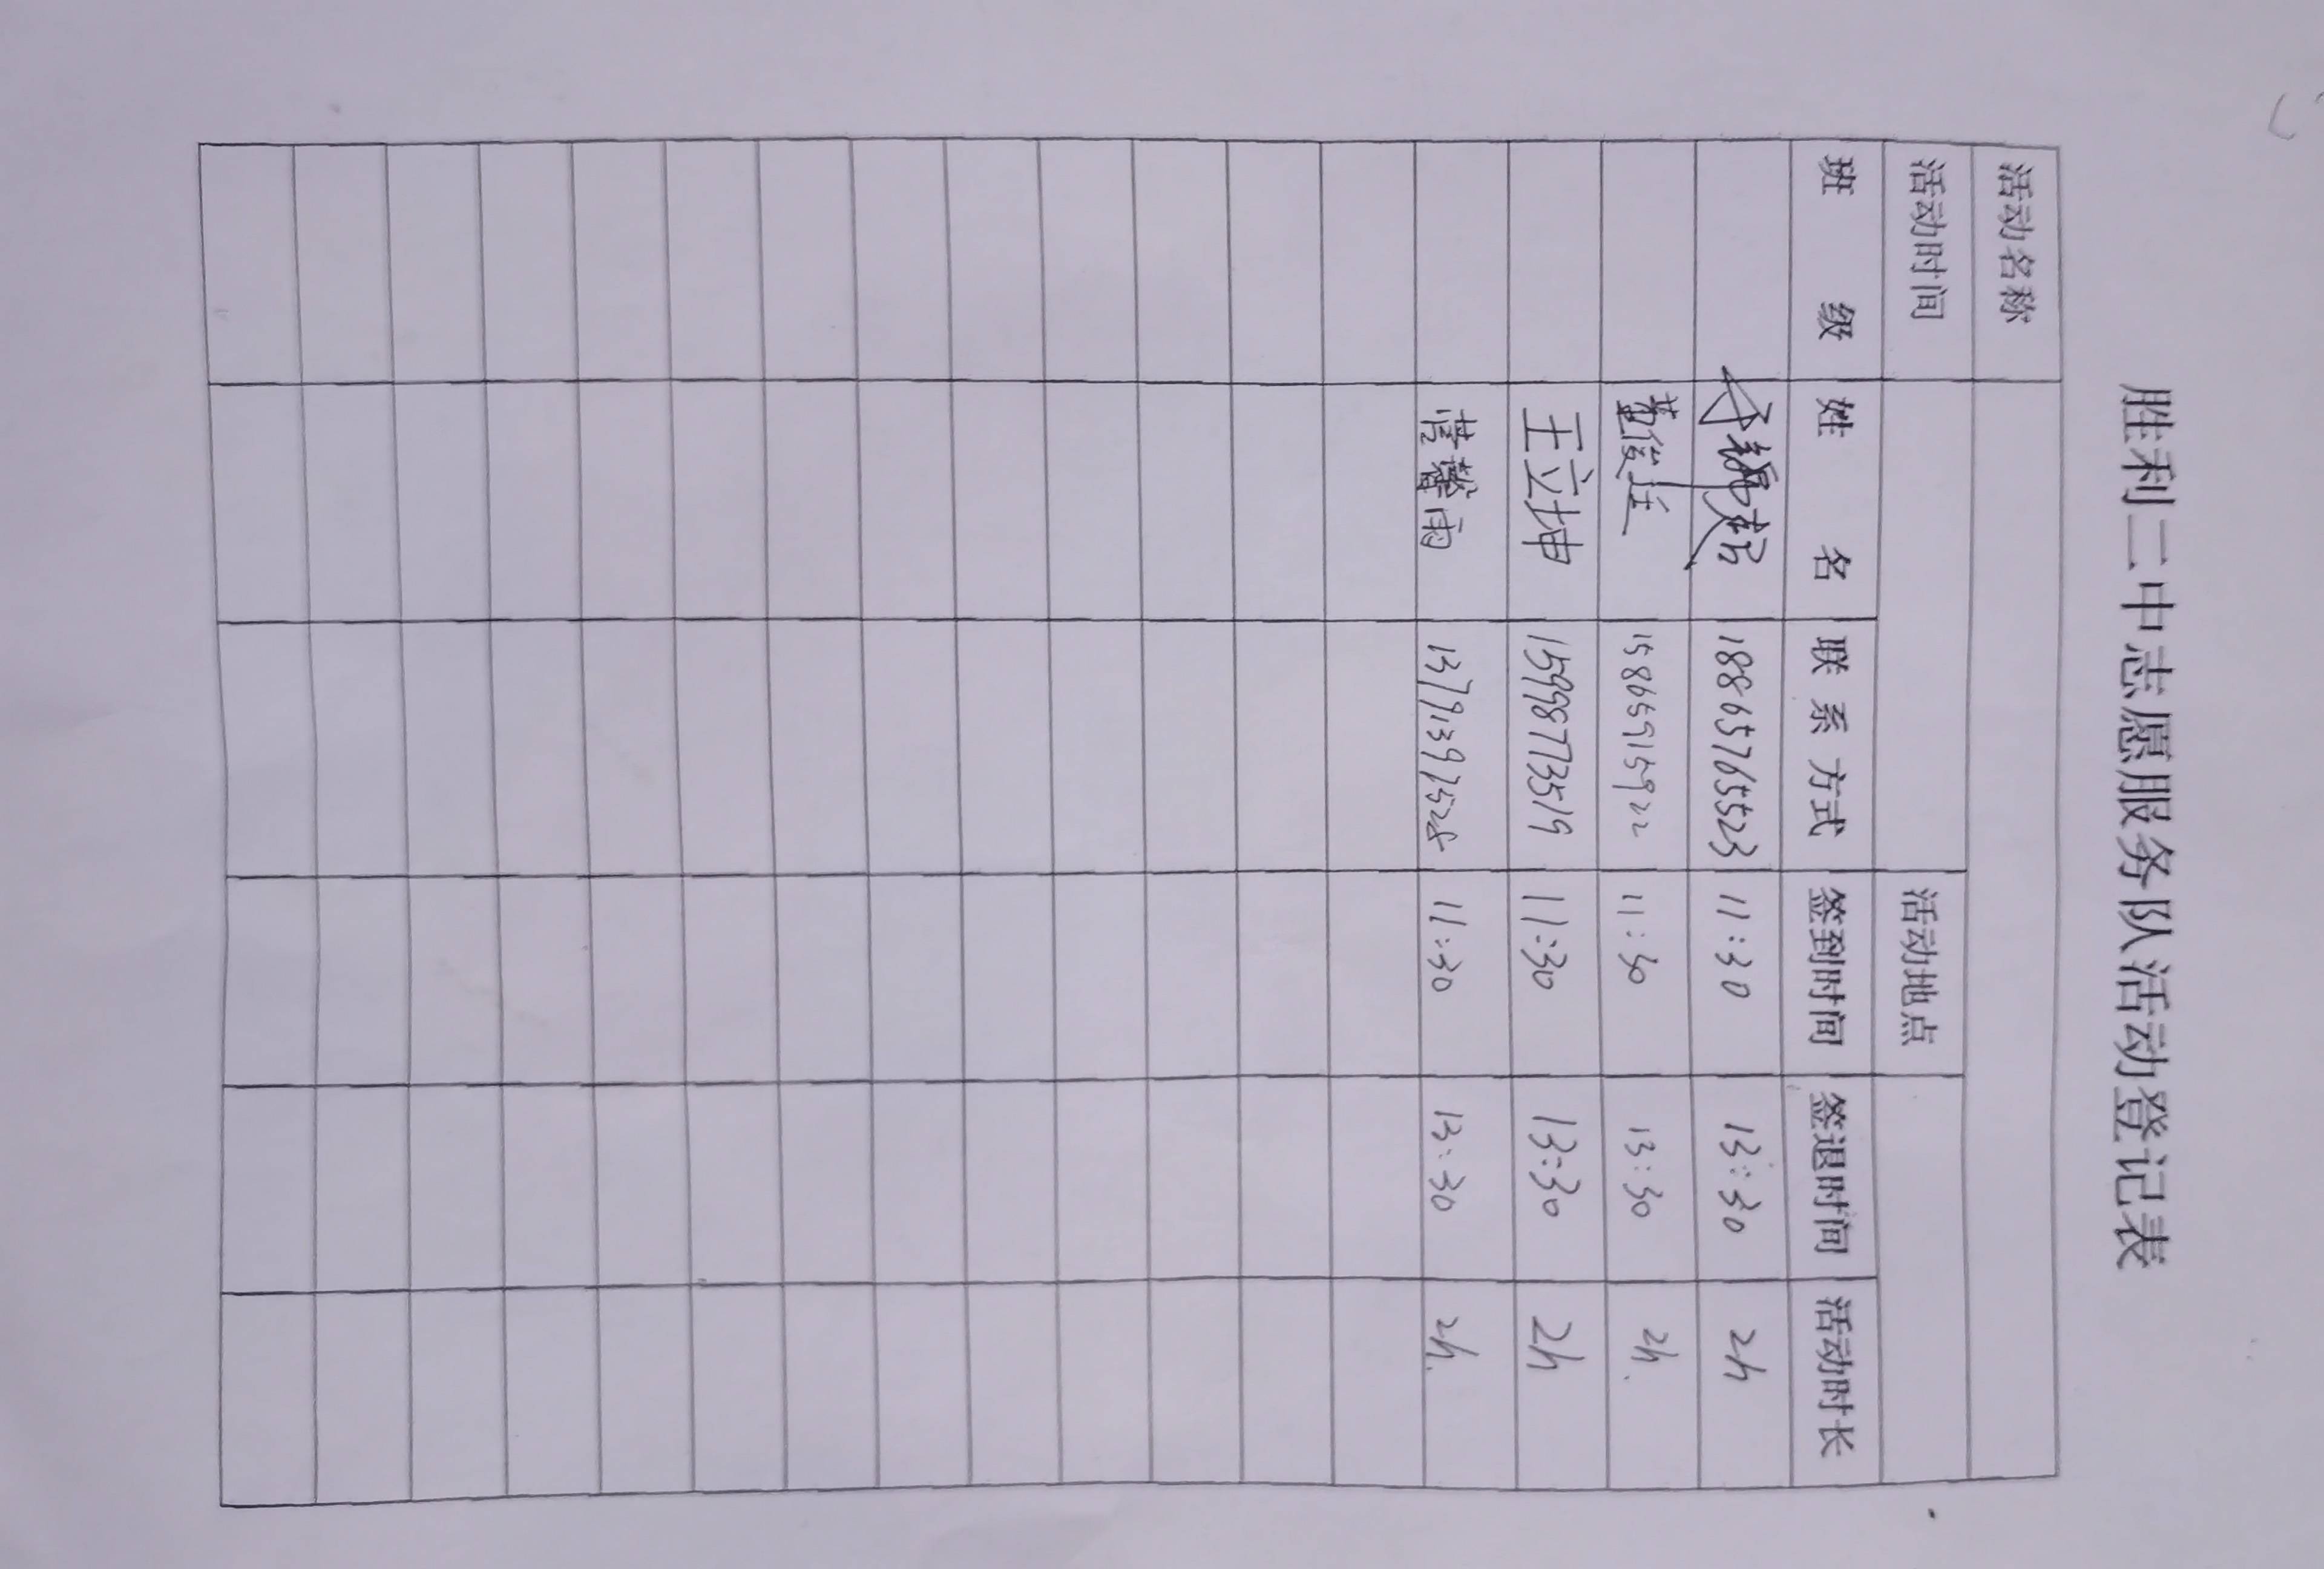 胜利二中志愿服务队活动登记表
活动名称
活动时间 活动地点
班级 姓名 联系方式 签到时间 签退时间 活动时长
18865765523 11:30 13:30 2h
董俊廷 15865915922 11:30 13:30 2h.
王立坤 15998773519 11:30 13:30 2h
馨雨 13791397528 11:30 13:30 2h.